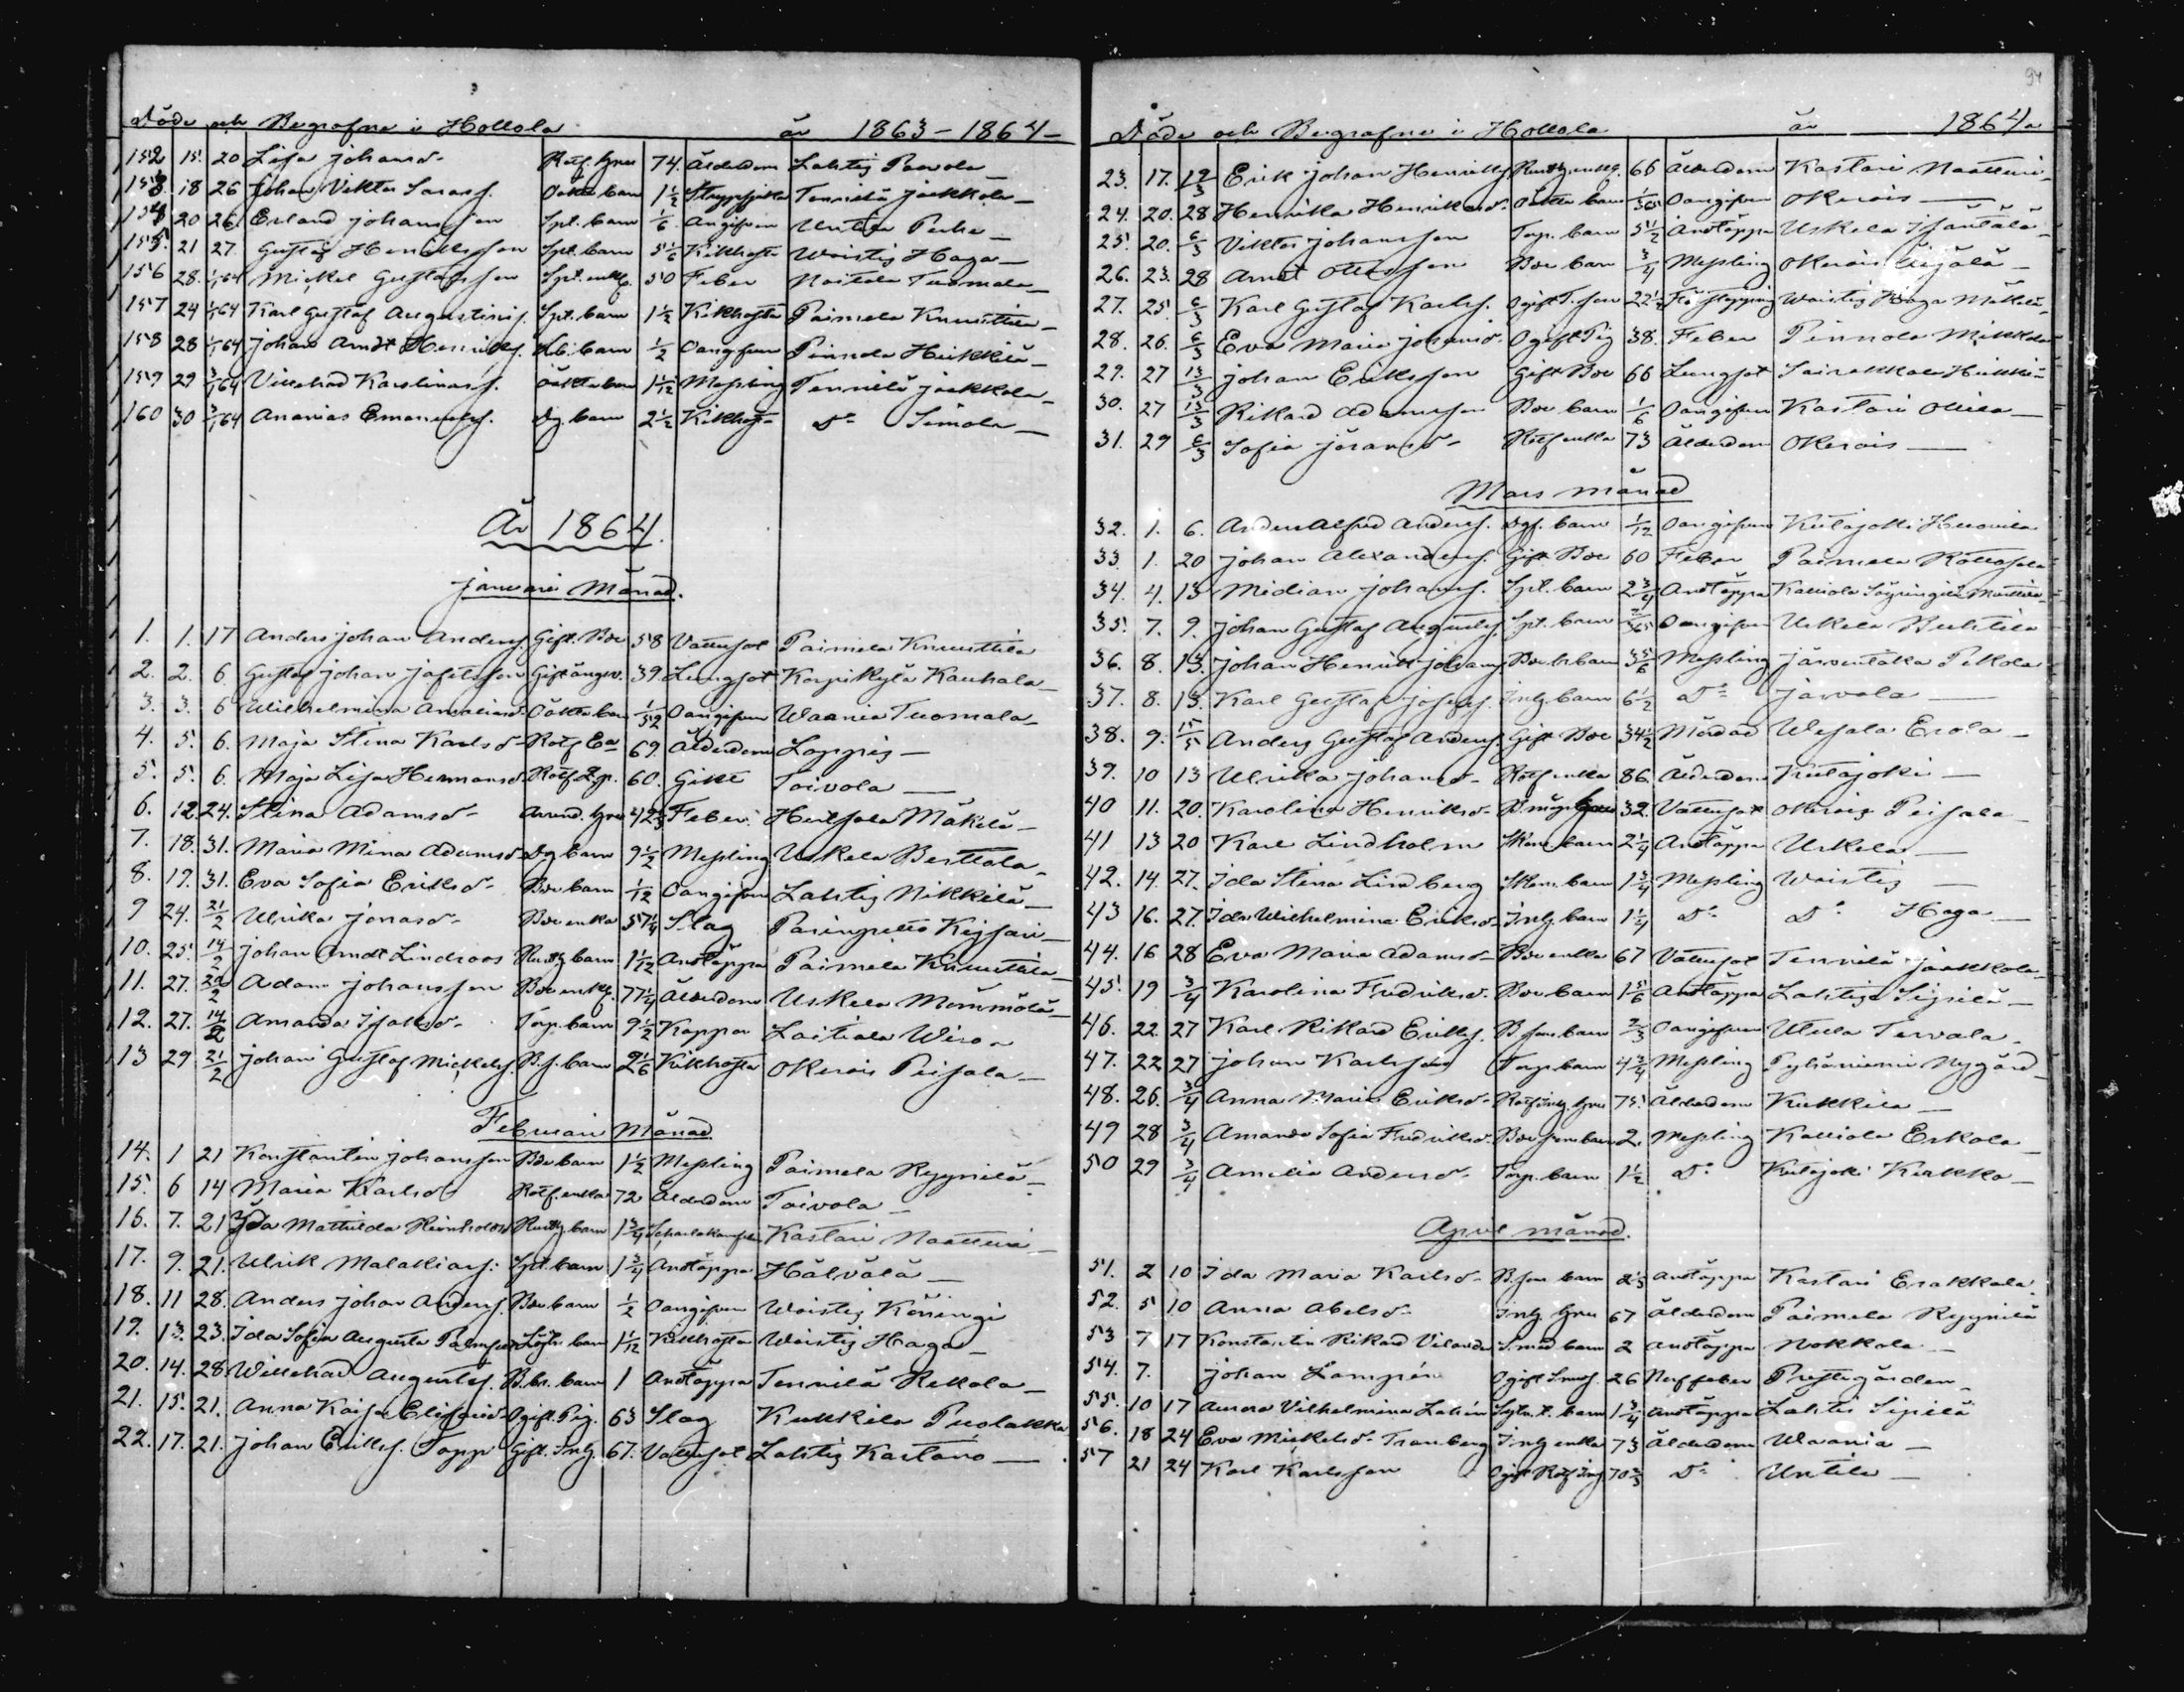 Döde och Begrafne i Hollola år 1863-1864-
152 15. 20 Lisa Johansd. Rotf. hjon 74. Ålderdom Lahtis Paavola
153. 18 26 Johan Viktor Sarasf. Oäkta barn 1 1/2 Strypsjuka Tennilä Jaakkola
154 20 26 Erland Johansson Spl. barn 1/6 Oangifven Untila Perhe
155. 21 27. Gustaf Henriksson Spl. barn 5 1/6 Kikhosta Waistis Haga
156 28. 1/1 64 Mickel Gustafsson Spt. enkl. 50 Feber Noitala Tuomala
157 24 1/1 64 Karl Gustaf Augustinif. Spt. barn 1 1/2 Kikhosta Paimela Knuuttila
158 28 1/1 64 Johan Arndt Henriksf. barn 1/2 Oangifven Pennola Heikkilä
159 29 3/1 64 Villehad Karolinasf. Oäkta barn 1 1/12 Messling Tennilä Jaakkola
160 30 3/1 64 Ananias Emanuelsf. Dg. barn 2 1/2 Kikhosta D:o Simola
År 1864.
Januari Månad.
1. 1. 17 Anders Johan Andersf. Gift. Bde 58 Vattusot Paimela Knuuttila
2. 2. 6 Gustaf Johan Jafetsson Gift 39. Lungsot Korpikylä Kauhala
3. 3. 6 Wilhelmina Amaliasd. Oäkta barn 1/52 Oangifven Waania Tuomala
4. 5. 6. Maja Stina Karlsd. Rotf. Ea 69. Ålderdom Loppis
5. 5. 6. Maja Lisa Hermansd. Rotf. 60. Gikt Toivola
6. 12. 24. Stina Adamsd. Arrend. hjon 42 Feber. Hersala Mäkelä
7. 18. 31. Maria Mina Adamsd. Dg barn 9 1/2 Messling Uskela Berttala
8. 19. 31. Eva Sofia Eriksd. Bde barn 1/12 Oangifven Lahtis Nikkilä
9 24. 21/2 Ulrika Jonasd. Bde enka 57 1/4 Slag Parinpelto Keisari
10. 25. 14/2 Johan Arndt Lindroos Rustg barn 1 1/12 Andtäppa Paimela Knuuttila
11. 27. 20/2 Adam Johansson Bde enkl. 77 1/4 Ålderdom Uskela Mömmölä
12. 27. 14/2 Amanda Isaksd. Torp. barn 9 1/2 Koppor Laitiala Wiro
13 29 21/2 Johan Gustaf Mickelsf. B.s. barn 2 1/6 Kikhosta Okerois Peisala
Februari Månad
14. 1 21 Konstantin Johansson Bde barn 1 1/2 Messling Paimela Ryynilä
15. 6 14 Maria Karlsd. Rotf. enka 72 Ålderdom Toivola
16. 7. 21 Ida Mathilda Reinholdsd Rustg. barn 1 3/4 Scharlakansfeber Kastari Naatteri
17. 9. 21. Ulrik Malakiasf. Spt. barn 1 3/4 Andtäppa Hälvälä
18. 11 28. Anders Johan Andersf. Bde barn 1/2 Oangifven Waistis Köningi
19. 13. 23. Ida Sofia Augusta barn 1 1/12 Kikhosta Waistis Haga
20. 14. 28. Willehad Augustsf. B.br. barn 1 Andtäppa Tennilä Rekola
21. 15. 21. Anna Kaisa Eliasd. Ogift. Pig. 63 Slag Kukkila Puolakka
22. 17. 21. Johan Eriksf. Topp Gift. Inh. 67. Vattusot Lahtis Kartano
94
Döde och Begrafne i Hollola år 1864
23. 17. 12/3 Erik Johan Henriksf Rustg enklg. 66 Ålderdom Kastari Naatteri
24. 20. 28 Henrika Henriksd. Oäkta barn 1/365 Oangifven Okerois
25. 20. 6/3 Viktor Johansson Torp. barn 5 1/2 Andtäppa Uskela Isäntälä
26. 23. 28 Arndt Ottosson Bde barn 3/4 Messling Okerois Äijälä
27. 25. 6/3 Karl Gustaf Karlsf. Ogift T. son 22 1/2 Waistis Haga Mäkelä
28. 26. 6/3 Eva Maria Johansd. Ogift Pig 38. Feber Pennola Mikkola
29. 27 13/3 Johan Eriksson Gift Bde 66 Lungsot Sairakkala Heikkilä
30. 27 13/3 Rikard Adamsson Bde barn 1/6 Oangifven Kastari Ollila
31. 29 6/3 Sofia Göransd. Rotf enka 73 Ålderdom Okerois
Mars månad
32. 1. 6. Anders Alfred Andersf. Dgk. barn 1/12 Oangifven Kutajoki Heuvila
33. 1. 20 Johan Alexandersf. Gift Bde 60 Feber Paimela
34. 4. 13 Midian Johansf. Spl. barn 2 3/4 Andtäppa Kalliola Mattila
35. 7. 9. Johan Gustaf Augustsf. Spt. barn 7/365 Oangifven Uskela Buhtila
36. 8. 13. Johan Henrik Johansf. Bde br barn 3 5/6 Messling Järventaka Pekola
37. 8. 13. Karl Gustaf Josefsf. Inh. barn 6 1/2 D:o Järvola
38. 9. 15/5 Anders Gustaf Andersf. Gift Bde 34 1/2 Mördad Wesala Erola
39. 10 13 Ulrika Johansd. Rotf enka 86. Ålderdom Kutajoki
40 11. 20. Karolina Henriksd. 32. Vattusot Okerois Peisala
41 13 20 Karl Lindholm barn 2 1/4 Andtäppa Uskela
42. 14. 27. Ida Stina Lindberg barn 1 3/4 Messling Waistis
43 16. 27. Ida Wilhelmina Eriksd. Inh. barn 1 1/4 D:o D:o Haga
44. 16 28 Eva Maria Adamsd. Bde enka 67 Vattusot Tennilä Jaakkola
45. 19 3/4 Karolina Fredriksd. Bde barn 1 5/6 Andtäppa Lahtis Sipilä
46. 22. 27 Karl Rikard Eriksf. B. son barn 2/3 Oangifven Utula Tervala
47. 22 27 Johan Karlsson Torp. barn 4 3/4 Messling Pyhäniemi Nygård
48. 26. 3/4 Anna Maria Eriksd. Rotf Inh. hjon 75. Ålderdom Kukkila
49 28 3/4 Amanda Sofia Fredriksd. Bde son barn 2. Messling Kalliola Eskola
50 29 3/4 Amelia Andersd. Torp. barn 1 1/2 D:o Kutajoki Kirkko
April månad.
51. 2 10 Ida Maria Karlsd. B. son barn 2 1/3 Andtäppa Kastari Erakkala
52. 5 10 Anna Abelsd. Inh hjon 67 Ålderdom Paimela Ryynilä
53 7 17 Konstantin Rikard Smed barn 2 Andtäppa Nokkola
54. 7. Johan Lampén Ogift 26 Nerffeber Prestgården
55. 10 17 Aurora Vilhelmina barn 1 3/4 Andtäppa Lahtis Sipilä
56. 18 24 Eva Mickelsd. Tranberg Inh enka 73 Ålderdom Waania
57 21 24 Karl Karlsson Ogift Rotf Inh 70 2/3 D:o Untila